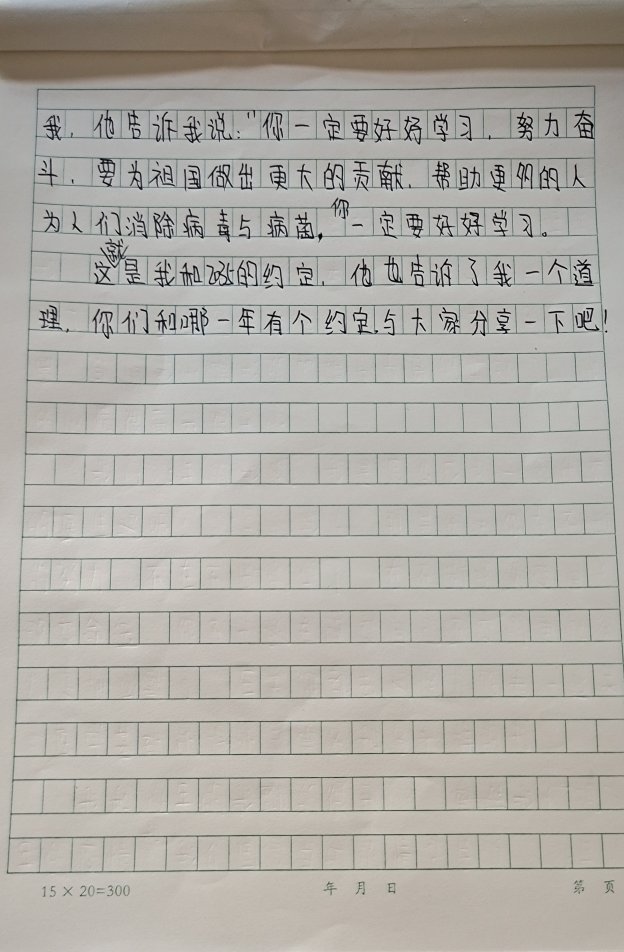 我，他告诉我说："你一定要好好学习，努力奋
斗，要为祖国做出更大的贡献，帮助更多的人
为人们消除病毒与病菌，你一定要好好学习。
这就是我和2035的约定，他也告诉了我一个道
理，你们和哪一年有个约定，与大家分享一下吧！
15×20=300 年 月 日 第 页